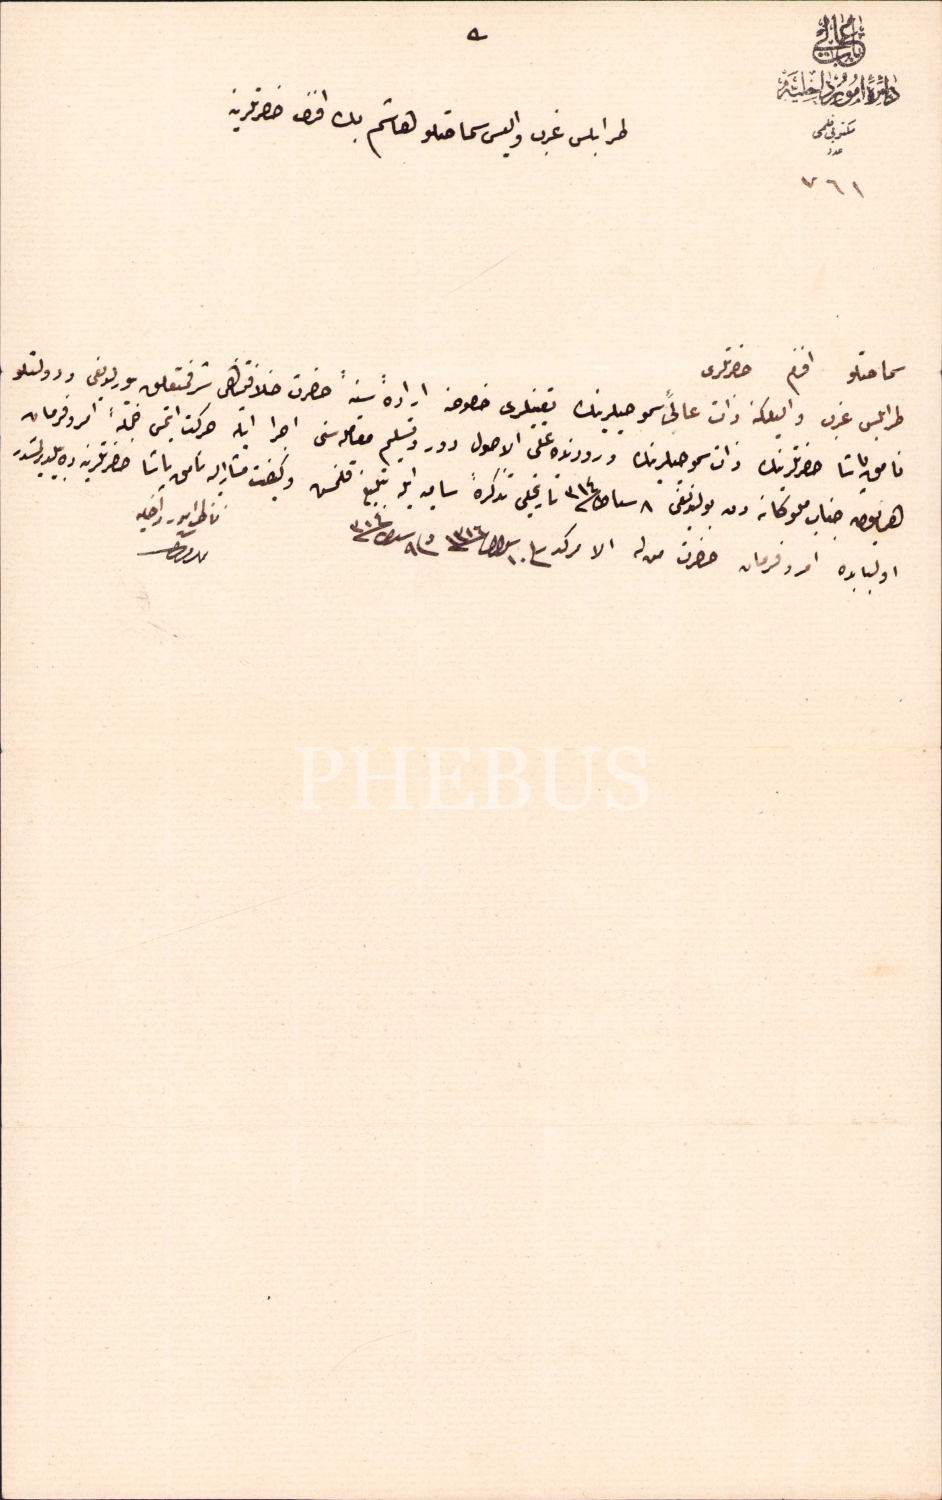 باب عالی
دائرۀ امور داخلیه
مكتوبی قلمی
عدد
٧٦١
طرابلس غرب والیسی سماحتلو هاشم بك افندی حضرتلرینه
سماحتلو افندم حضرتلری
طرابلس غرب والیلكنه ذات عالیٔ سموحیلرینك تعیینلری خصوصنه ارادۀ سنیۀ حضرت خلافتپناهی شرفمتعلق بیورلدیغی و دولتلو
نامق پاشا حضرتلرینك ذات سموحیلرینك ورودنده علی الاصول دور و تسلیم معامله سنی اجرا ایله حركت ایتمسی جملۀ امر و فرمان
همایون جناب ملوكانه دن بولندیغی ٨ ٣١٤ تاریخلی تذكرۀ سامیه ایله تبلیغ قلنمش و كیفیت مشار الیه نامق پاشا حضرتلرینه ده بیلدیرلمشدر
اولبابده امر و فرمان حضرت من له الامركدر ١٣١٦ ٣١٤
ناظر امور داخلیه
PHEBUS